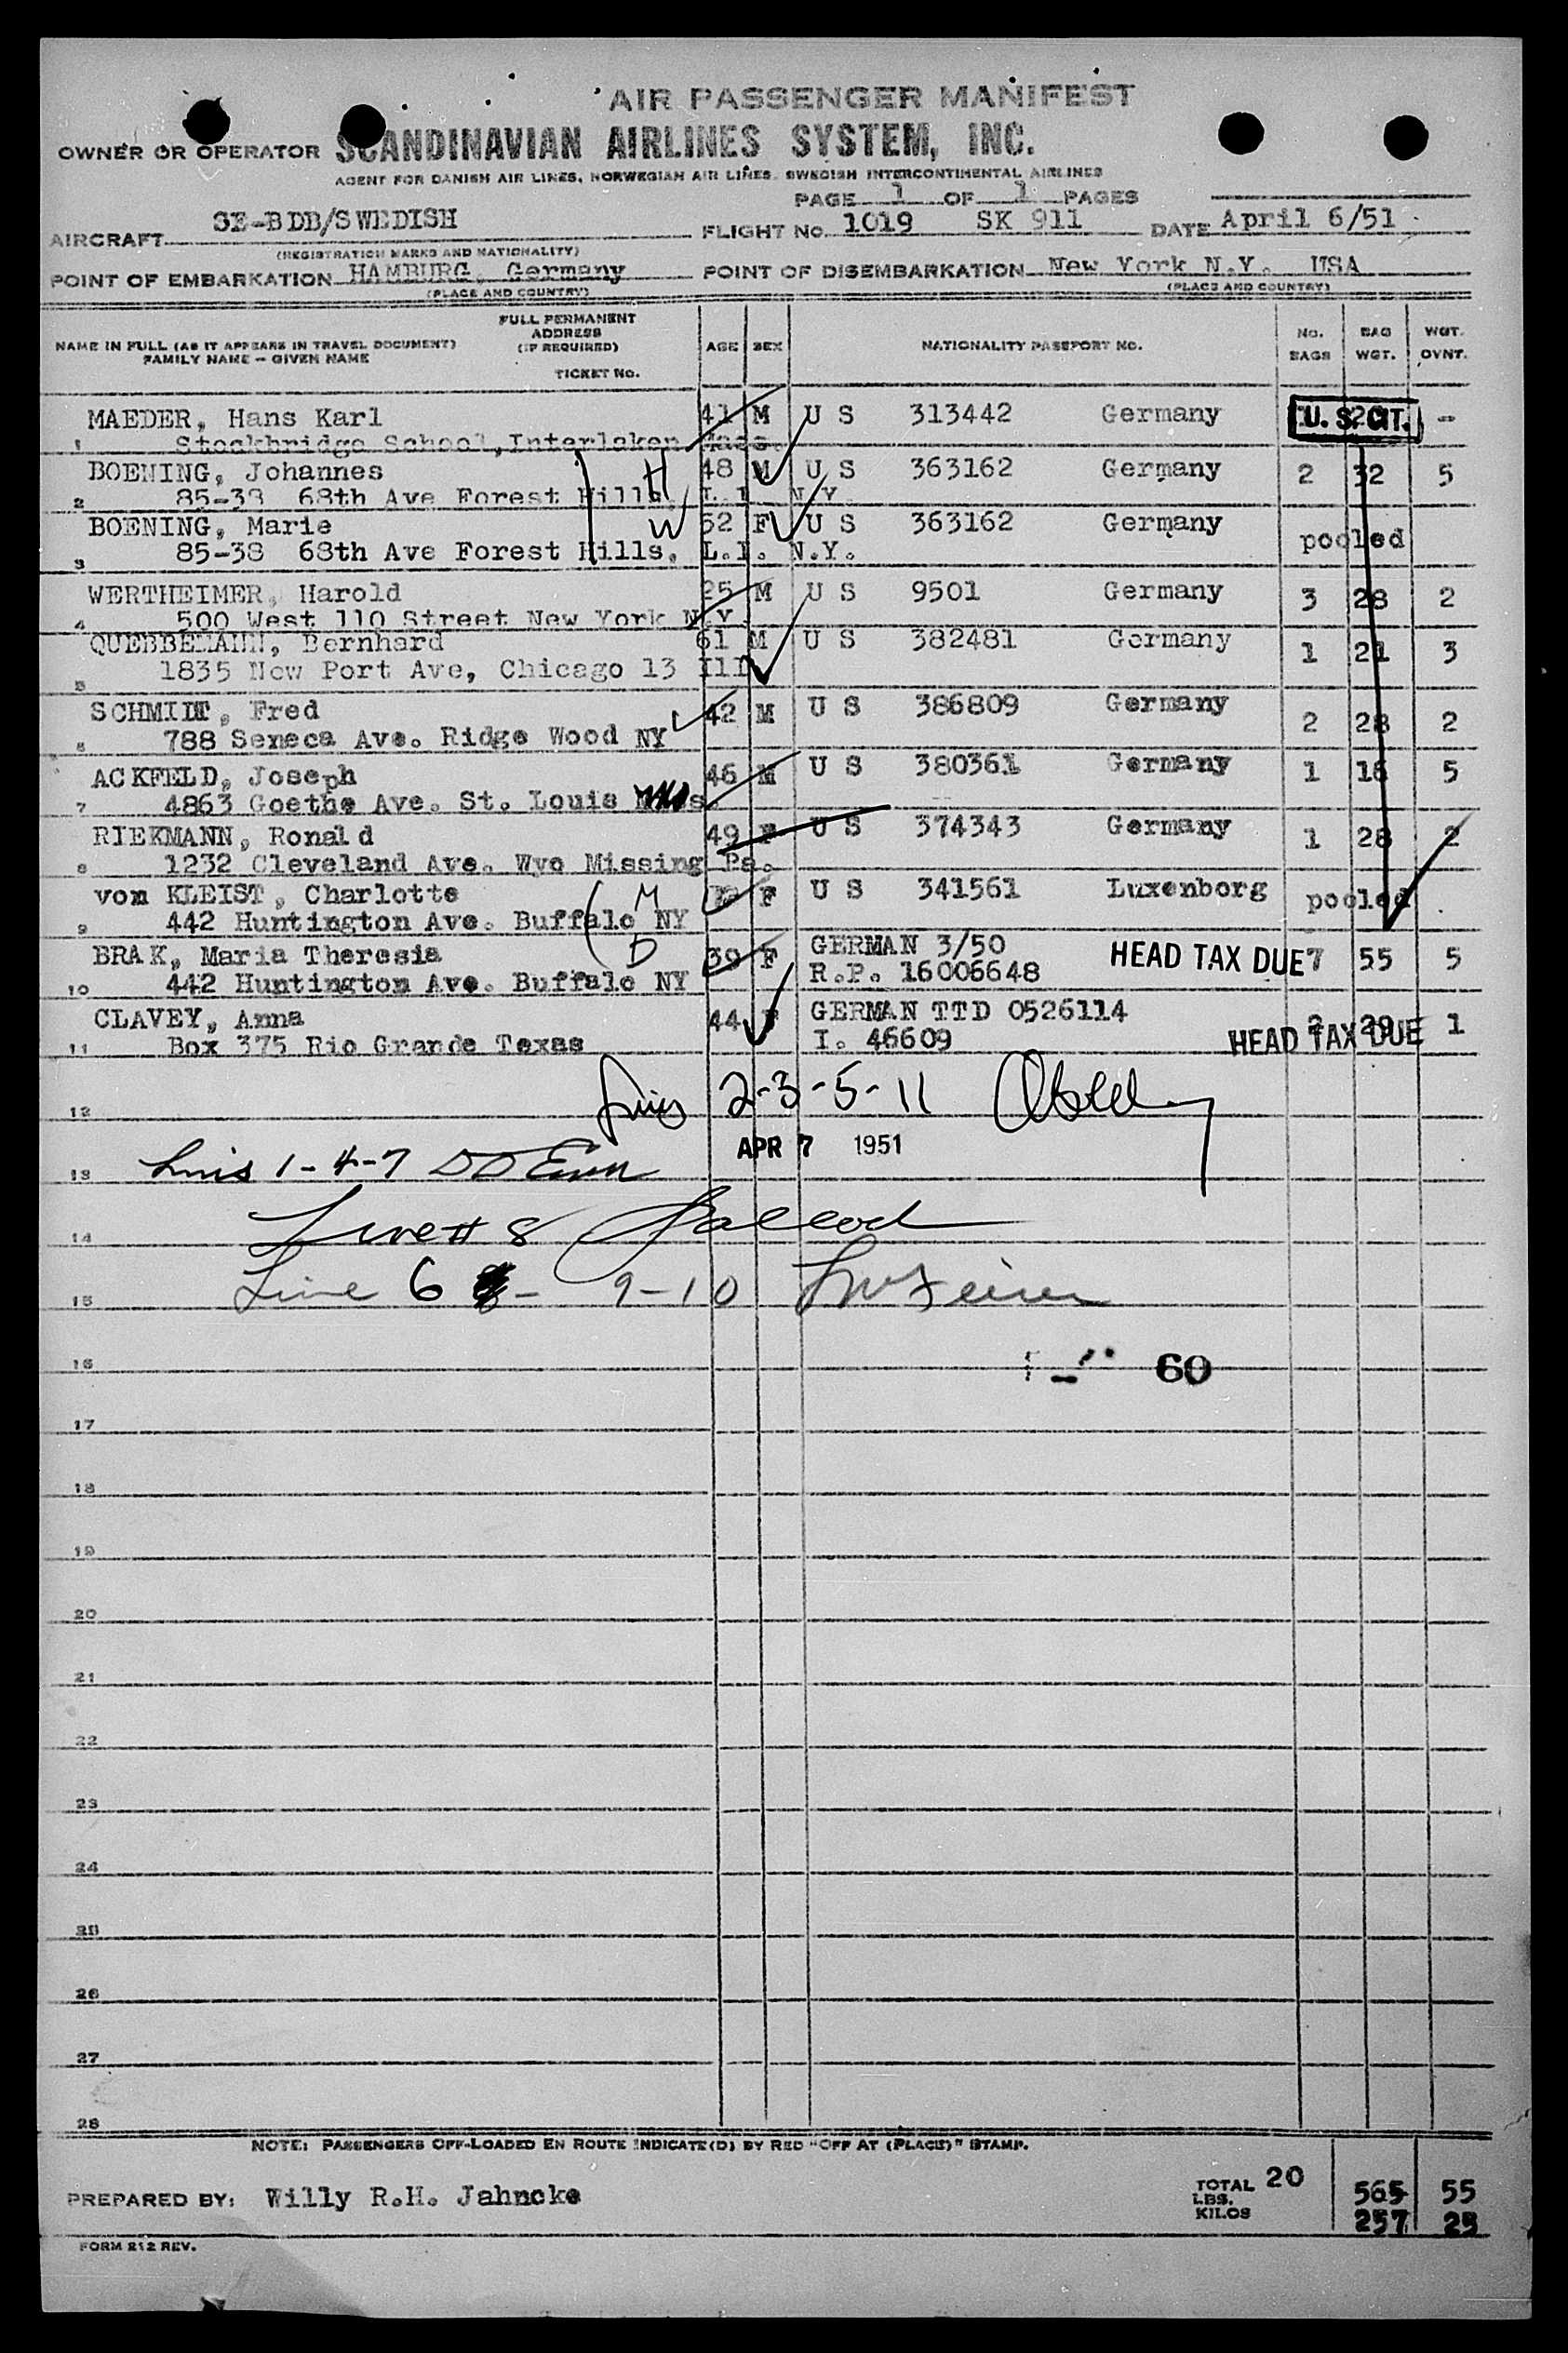 AIR PASSENGER MANIFEST
OWNER OR OPERATOR SCANDINAVIAN AIRLINES SYSTEM, INC.
AGENT FOR DANISH AIR LINES, NORWEGIAN AIR LINES, SWEDISH INTERCONTINENTAL AIRLINES
PAGE 1 OF 1 PAGES
AIRCRAFT SE-BDB/SWEDISH FLIGHT No. 1019 SK 911 DATE April 6/51
(REGISTRATION MARKS AND NATIONALITY)
POINT OF EMBARKATION HAMBURG, Germany POINT OF DISEMBARKATION New York N.Y. USA
(PLACE AND COUNTRY) (PLACE AND COUNTRY)
NAME IN FULL (AS IT APPEARS IN TRAVEL DOCUMENT) FAMILY NAME - GIVEN NAME FULL PERMANENT ADDRESS (IF REQUIRED) TICKET No. AGE SEX NATIONALITY PASSPORT NO. No. BAGS BAG WGT. WGT. OVNT.
MAEDER, Hans Karl 41 M U S 313442 Germany U. S. CIT. --
1 Stockbridge School, Interlaken Mass.
BOENING, Johannes H 48 M U S 363162 Germany 2 32 5
2 85-38 68th Ave Forest Hills, L.I. N.Y.
BOENING, Marie W 52 F U S 363162 Germany pooled
3 85-38 68th Ave Forest Hills, L.I. N.Y.
WERTHEIMER, Harold 25 M U S 9501 Germany 3 28 2
4 500 West 110 Street New York N.Y.
QUEBBEMANN, Bernhard 61 M U S 382481 Germany 1 21 3
5 1835 New Port Ave, Chicago 13 Ill
SCHMIDT, Fred 42 M U S 386809 Germany 2 28 2
6 788 Seneca Ave. Ridge Wood NY
ACKFELD, Joseph 46 M U S 380361 Germany 1 18 5
7 4863 Goethe Ave. St. Louis
RIEKMANN, Ronald 49 F U S 374343 Germany 1 28 2
8 1232 Cleveland Ave. Wyo Missing Pa.
von KLEIST, Charlotte M F U S 341561 Luxenborg pooled
9 442 Huntington Ave. Buffalo NY
BRAK, Maria Theresia D 39 F GERMAN 3/50 HEAD TAX DUE 7 55 5
10 442 Huntington Ave. Buffalo NY R.P. 16006648
CLAVEY, Anna 44 F GERMAN TTD 0526114 2 29 1
11 Box 375 Rio Grande Texas I. 46609 HEAD TAX DUE
12 Lines 2-3-5-11
APR 7 1951
13 Lines 1-4-7
14 Line # 8
15 Line 6 - 9-10
16 60
17
18
19
20
21
22
23
24
25
26
27
28
NOTE: PASSENGERS OFF-LOADED EN ROUTE INDICATE(D) BY RED "OFF AT (PLACE)" STAMP.
PREPARED BY: Willy R.H. Jahncke TOTAL 20
LBS. 565 55
KILOS 257 25
FORM 212 REV.